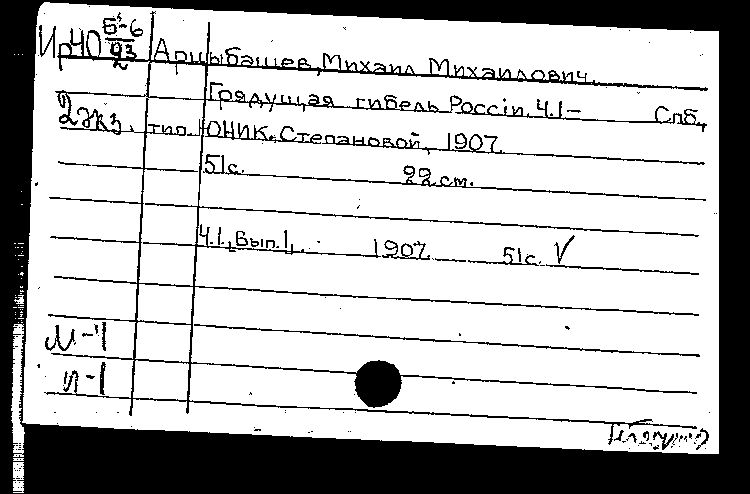 Ир40 Б-6
93
2
Арцыбашев, Михаил Михаилович.
Грядущая гибель Россiи. Ч.1- Спб.,
2 экз. тип. ЮНИК. Степановой, 1907.
51с. 22 см.
Ч.1, Вып.1, 1907. 51с. V
М-1
П-1